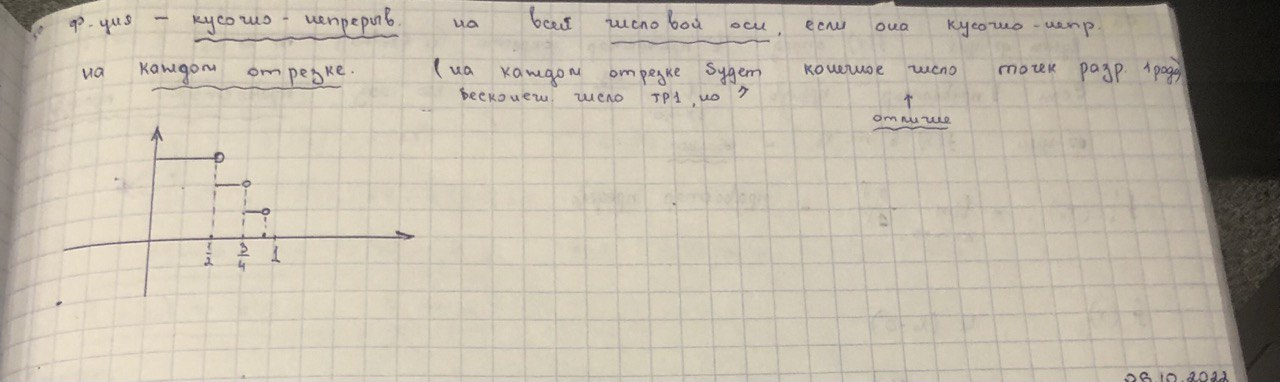 ф. ция – кусочно-непрерыв. на всей числовой оси, если она кусочно-непр.
на каждом отрезке. (на каждом отрезке будет конечное число точек разр. 1 рода)
бесконеч. число ТР1, но ↑
отличие
1/2 3/4 1
28.10.2022